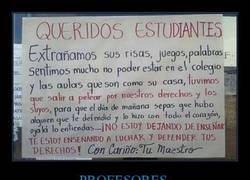 QUERIDOS ESTUDIANTES
Extrañamos sus risas, juegos, palabras
Sentimos mucho no poder estar en el colegio
y las aulas que son como su casa, tuvimos
que salir a pelear por nuestros derechos y los
suyos, para que el día de mañana sepas que hubo
alguien que te defendió y lo hizo con todo el corazón,
ojalá lo entiendas...¡NO ESTOY DEJANDO DE ENSEÑAR
TE ESTOY ENSEÑANDO A LUCHAR Y DEFENDER TUS
DERECHOS! Con Cariño: Tu Maestro
PROFESORES